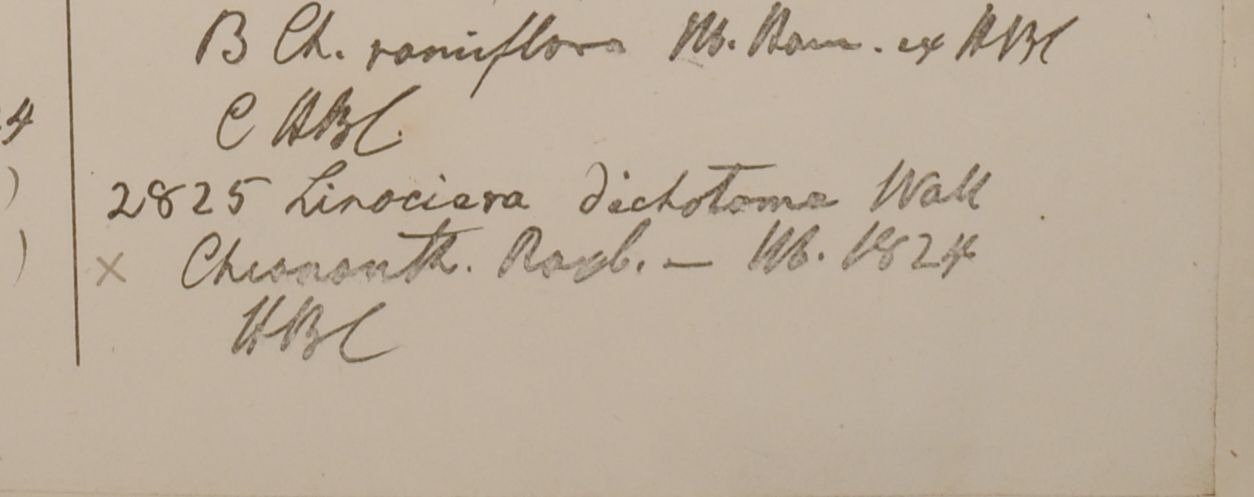 B Ch. ramiflora Hb. Ham. ex HBC
4
C HBC
)
2825 Linociera dichotoma Wall
)
× Chionanth. Roxb. — Hb. 1824
HBC